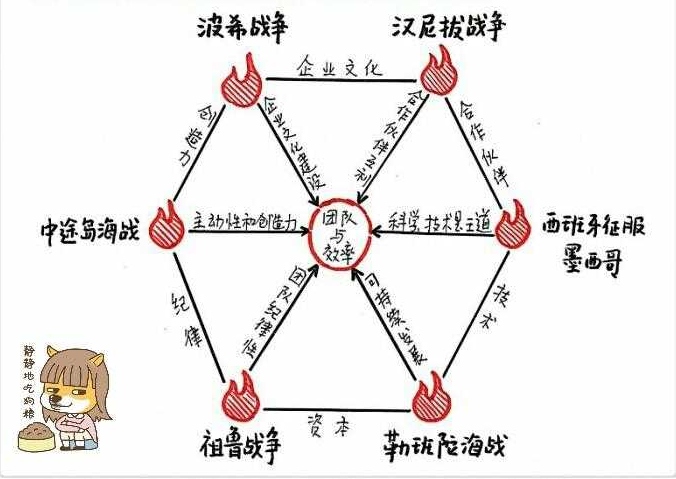 波希战争
汉尼拔战争
企业文化
创造力
企业文化建设
合作伙伴互利
合作伙伴
中途岛海战
主动性和创造力
团队
与
效率
科学技术是王道
西班牙征服
墨西哥
纪律
团队纪律性
可持续发展
技术
祖鲁战争
资本
勒班陀海战
静静地吃狗粮